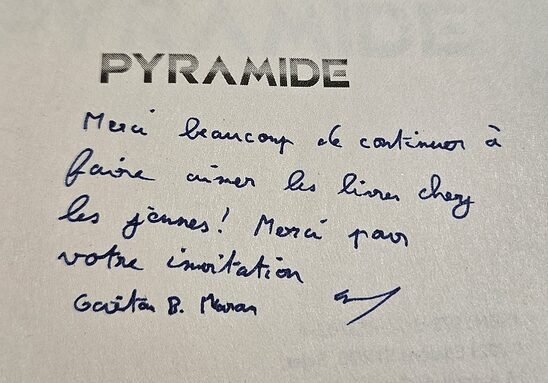 PYRAMIDE
Merci beaucoup de continuer à
faire aimer les livres chez
les jeunes! Merci pour
votre invitation
Gaëtan B. Maran